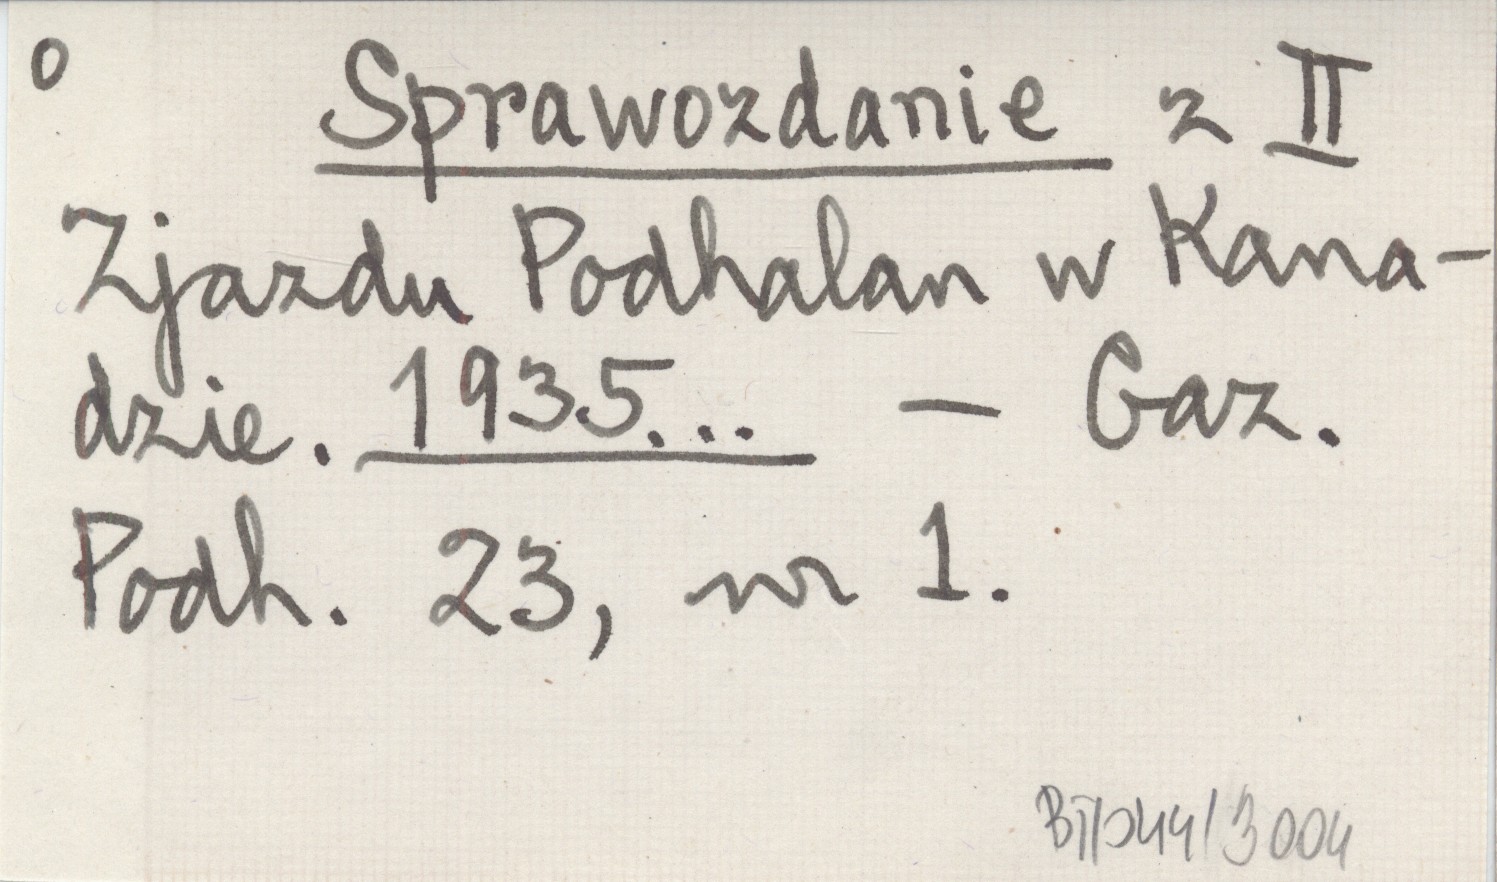 o
Sprawozdanie z II
Zjazdu Podhalan w Kana-
dzie. 1935... — Gaz.
Podh. 23, nr 1.
3004